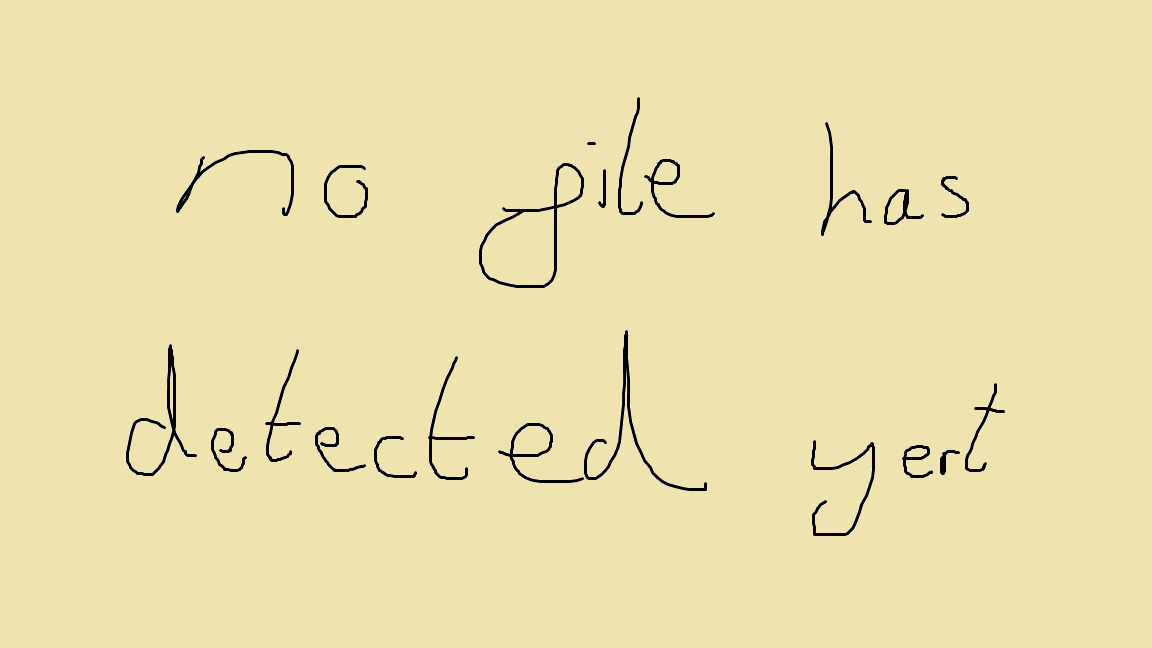 no pile has
detected yert